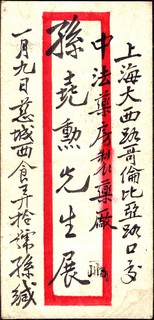 上海大西路哥倫比亞路口交
中法藥房製藥廠
孫堯勳先生展
一月九日慈城西食弄拾號孫緘